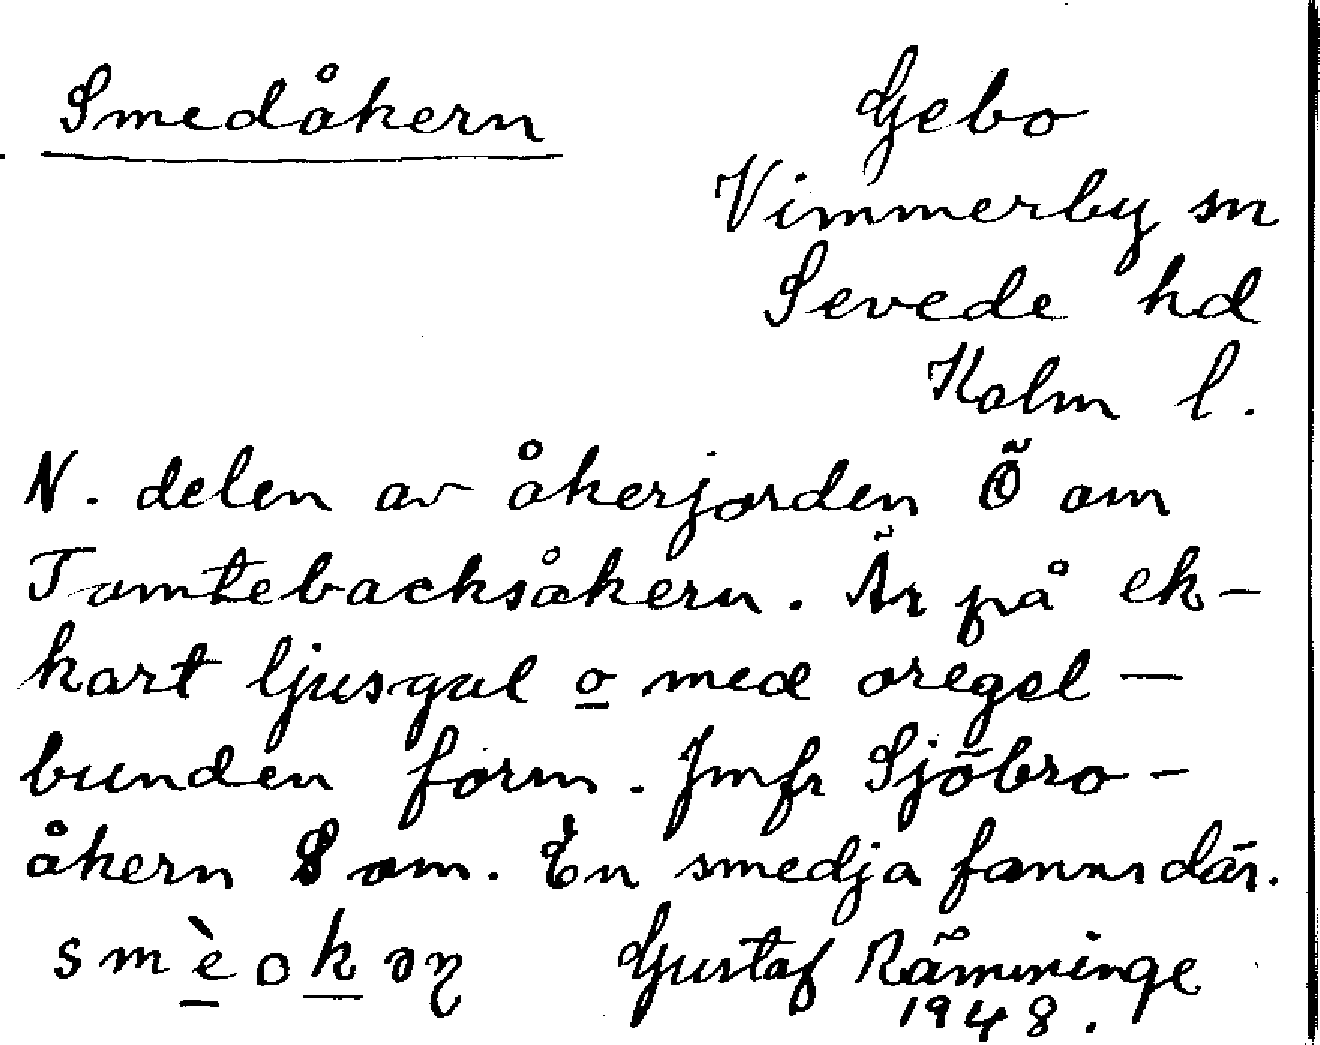 Smedåkern
Gebo
Vimmerby sn
Sevede hd
Kalm l.
N. delen av åkerjorden Ö om
Tomtebacksåkern. Är på ek-
kart ljusgul o med oregel-
bunden form. Jmfr Sjöbro-
åkern S om. En smedja fanns där.
Gustaf Rämminge
1948.